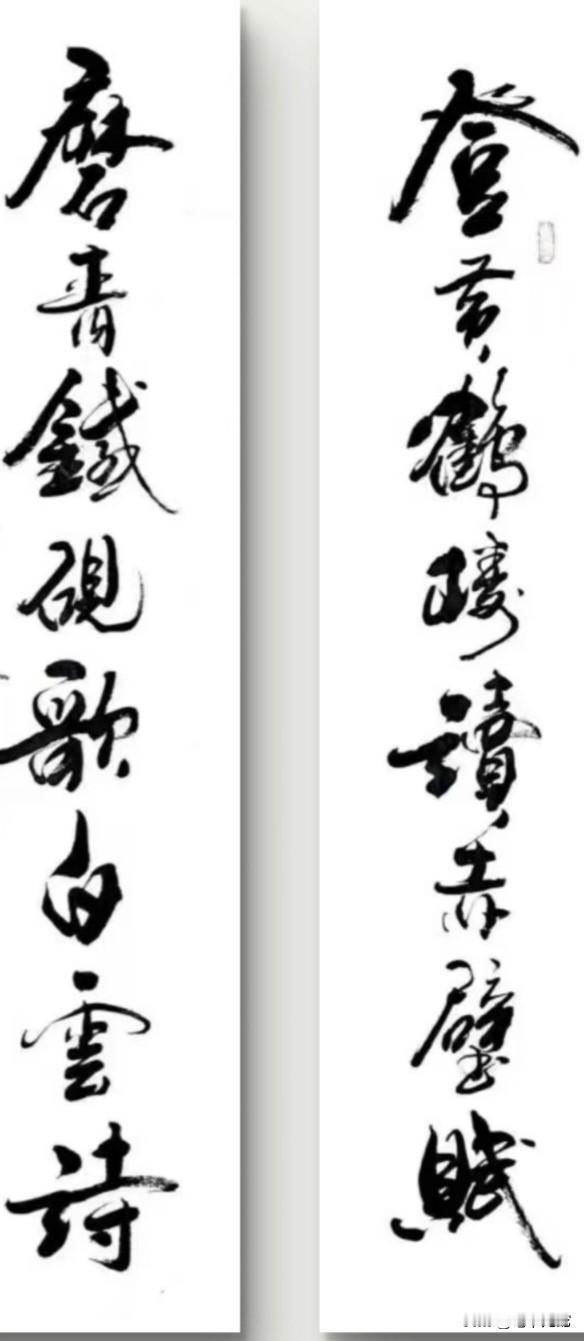 登黃鶴樓讀赤壁賦
磨青鐵硯歌白雲詩